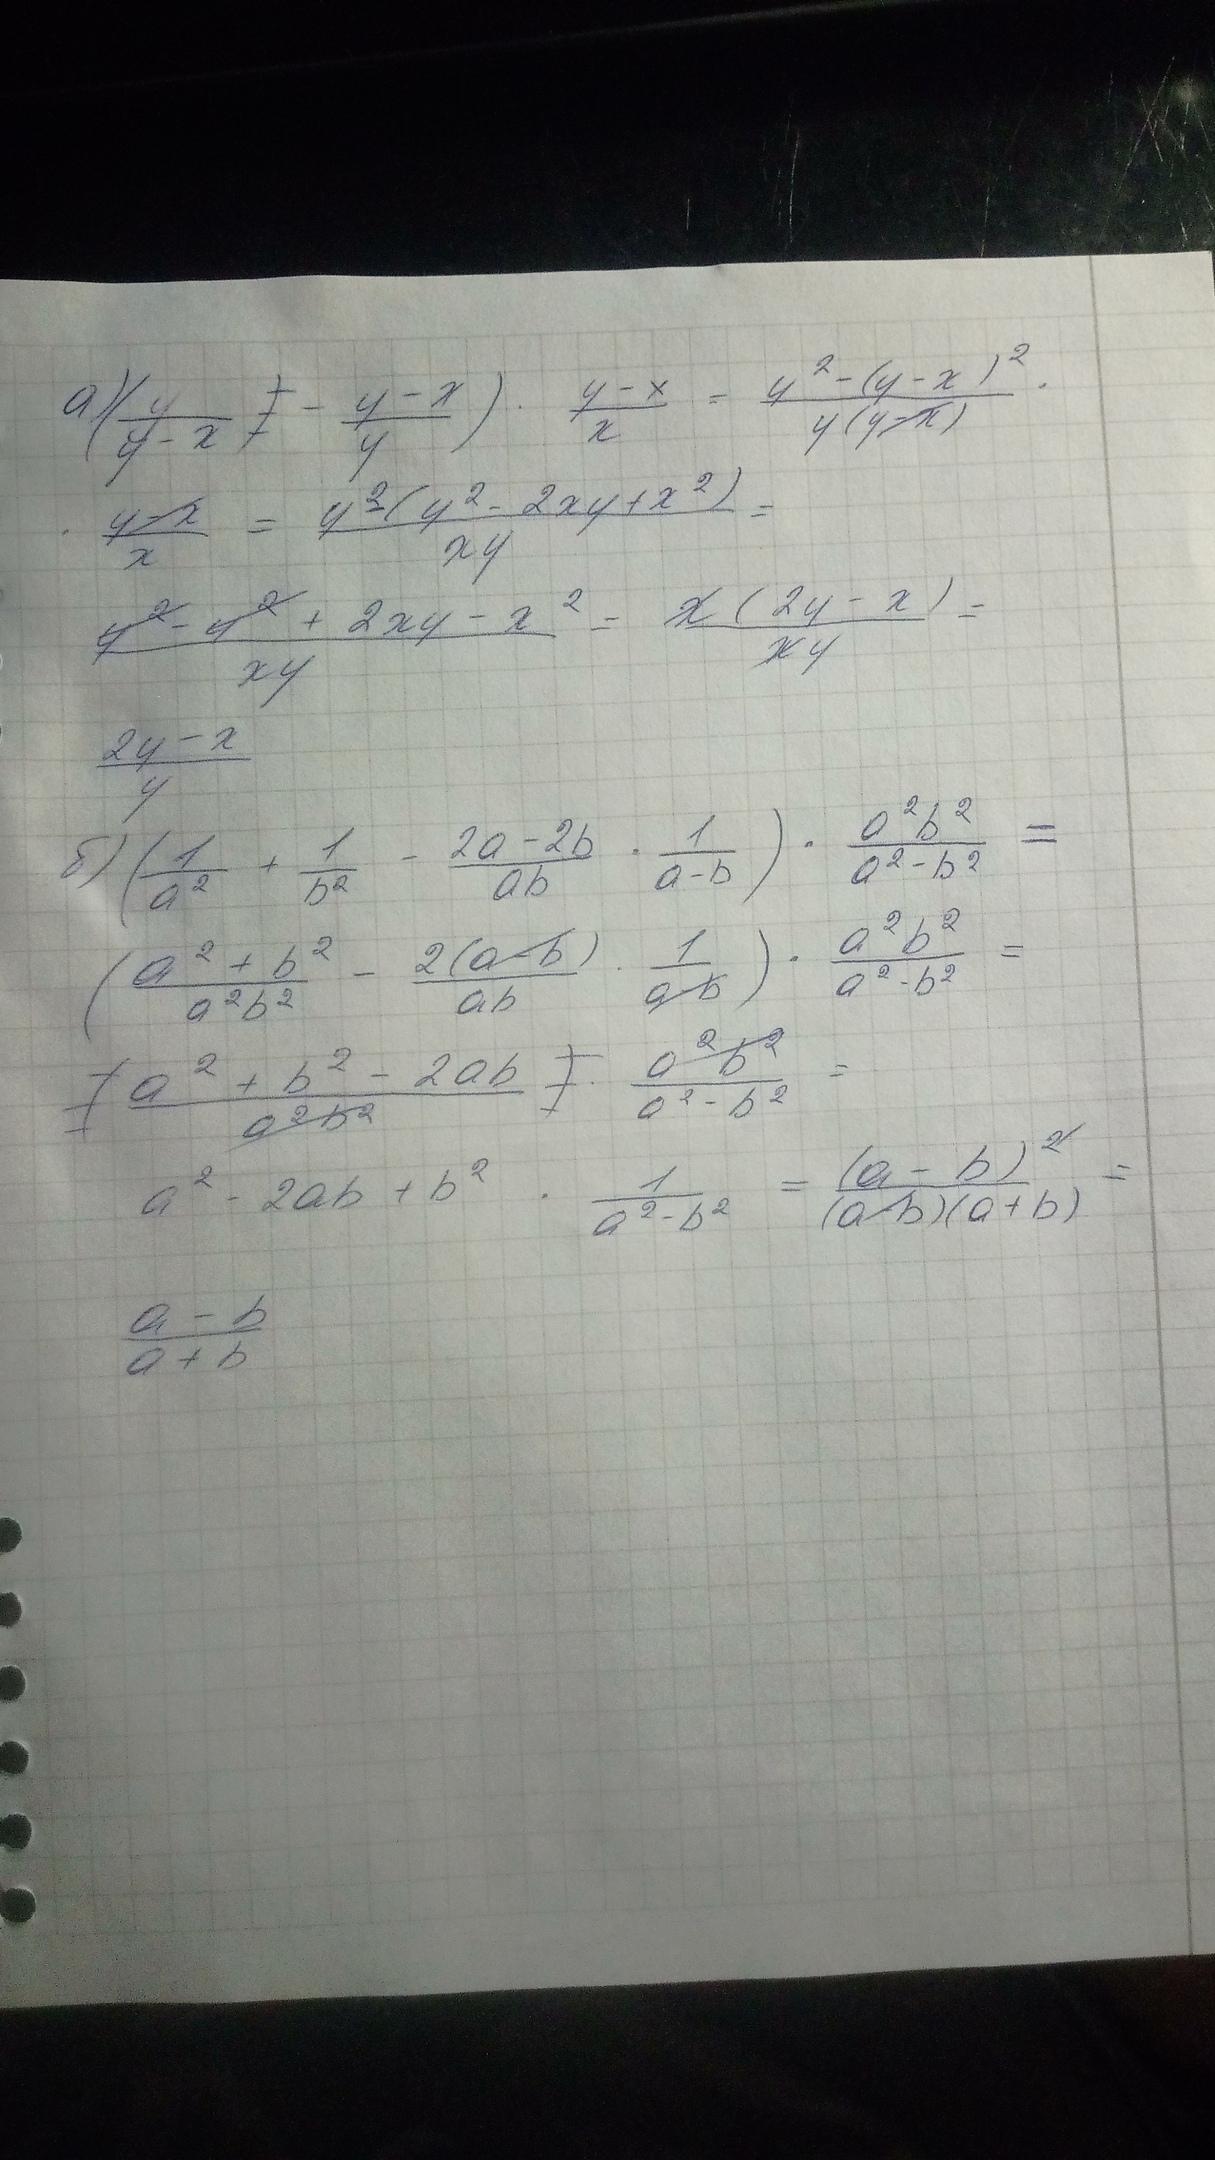 а) (y/(y-x) - (y-x)/y) · (y-x)/x = (y²-(y-x)²)/(y(y-x)) ·
· (y-x)/x = (y²-(y²-2xy+x²))/(xy) =
(y²-y²+2xy-x²)/(xy) = (x(2y-x))/(xy) =
(2y-x)/y
б) (1/a² + 1/b² - (2a-2b)/(ab) · 1/(a-b)) · (a²b²)/(a²-b²) =
((a²+b²)/(a²b²) - (2(a-b))/(ab) · 1/(a-b)) · (a²b²)/(a²-b²) =
(a²+b²-2ab)/(a²b²) · (a²b²)/(a²-b²) =
a²-2ab+b² · 1/(a²-b²) = (a-b)²/((a-b)(a+b)) =
(a-b)/(a+b)